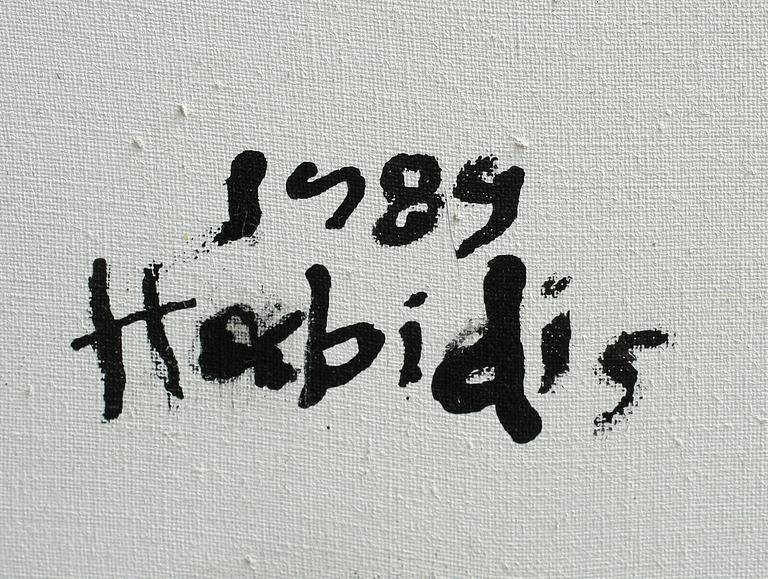 1989
Habidis